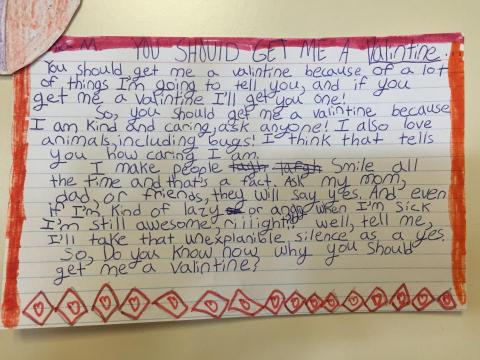 M. YOU SHOULD GET ME A Valintine...
You should get me a valintine because of a lot
of things I'm going to tell you, and if you
get me a valintine I'll get you one!
So, you should get me a valintine because
I am kind and caring, ask anyone! I also love
animals, including bugs! I think that tells
you how caring I am.
I make people Smile all
the time and that's a fact. Ask my mom,
dad, or friends, they will say yes. And even
if I'm kind of lazy or angry when I'm sick
I'm still awesome, riiiight? well, tell me,
I'll take that unexplanible silence as a yes.
So, Do you know now why you should
get me a valintine?